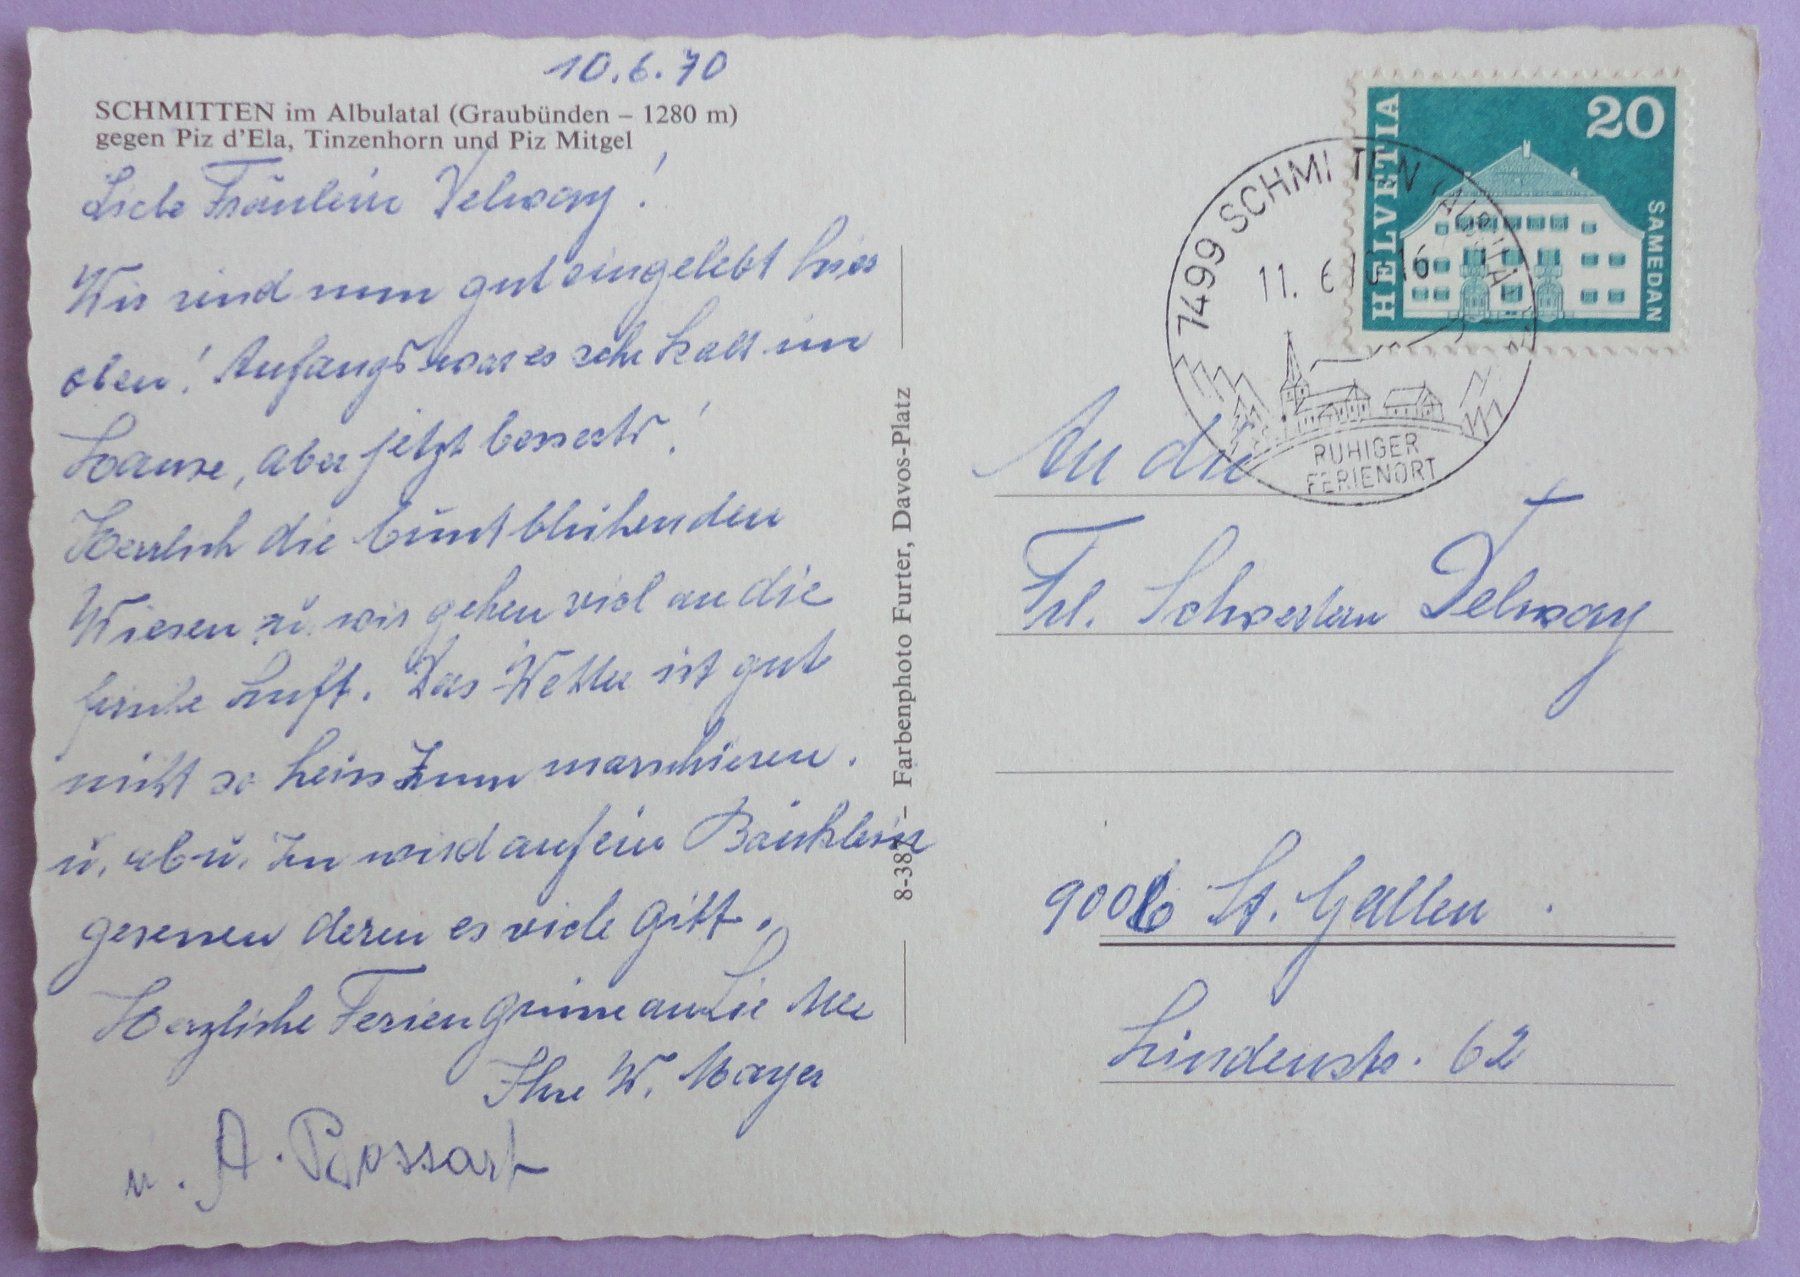 10.6.70
SCHMITTEN im Albulatal (Graubünden – 1280 m)
gegen Piz d'Ela, Tinzenhorn und Piz Mitgel
Liebe Fräulein Delway!
Wir sind nun gut eingelebt hier
oben! Anfangs war es sehr kalt im
Hause, aber jetzt besser!
Herrlich die bunt blühenden
Wiesen u. wir gehen viel an die
frische Luft. Das Wetter ist gut
nicht so heiss zum marschieren.
u. ab u. zu wird auf ein Bänklein
gesessen deren es viele gitt.
Herzliche Feriengrüsse an Sie Alle
Ihre W. Mayer
u. A. Bossart
8-387 – Farbenphoto Furter, Davos-Platz
HELVETIA
20
SAMEDAN
7499 SCHMITTEN (ALBULA)
11. 6. 16
RUHIGER
FERIENORT
An die
Frl. Schwestern Delway
9006 St. Gallen
Lindenstr. 62